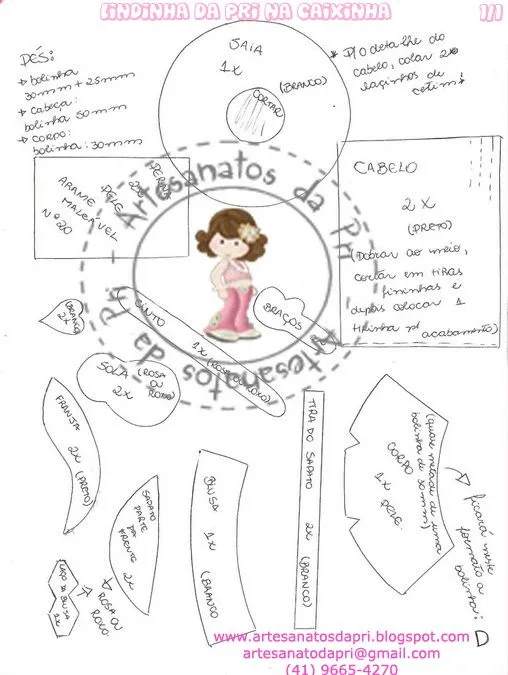 LINDINHA DA PRI NA CAIXINHA
1/1
DÉS:
* bolinha
30mm + 25mm
* CABEÇA:
bolinha 50mm
* CORPO:
bolinha: 30mm
SAIA
1X
(BRANCO)
CORTAR
* P/ O detalhe do
cabelo, colar 2
laçinhos de
cetim!
PELE
ARAME
MALEÁVEL
Nº 20
CABELO
2X
(PRETO)
(Dobrar ao meio,
cortar em tiras
fininhas e
depois colocar 1
tirinha p/ acabamento)
Artesanatos da Pri - Artesanatos da Pri
(BRANCO)
2X
CINTO
1X (ROSA OU ROXO)
BRAÇOS
SOLA (ROSA OU ROXO)
2X
FRANJA
2X
(PRETO)
SAPATO
PARTE
DA
FRENTE
2X
LAÇO DA BLUSA
1X
ROSA OU
ROXO
BLUSA 1X (BRANCO)
TIRA DO SAPATO 2X (BRANCO)
(quase metade de uma
bolinha de 30mm)
CORPO
1X
PELE
ficará neste
formato a
bolinha:
D
www.artesanatosdapri.blogspot.com
artesanatodapri@gmail.com
(41) 9665-4270